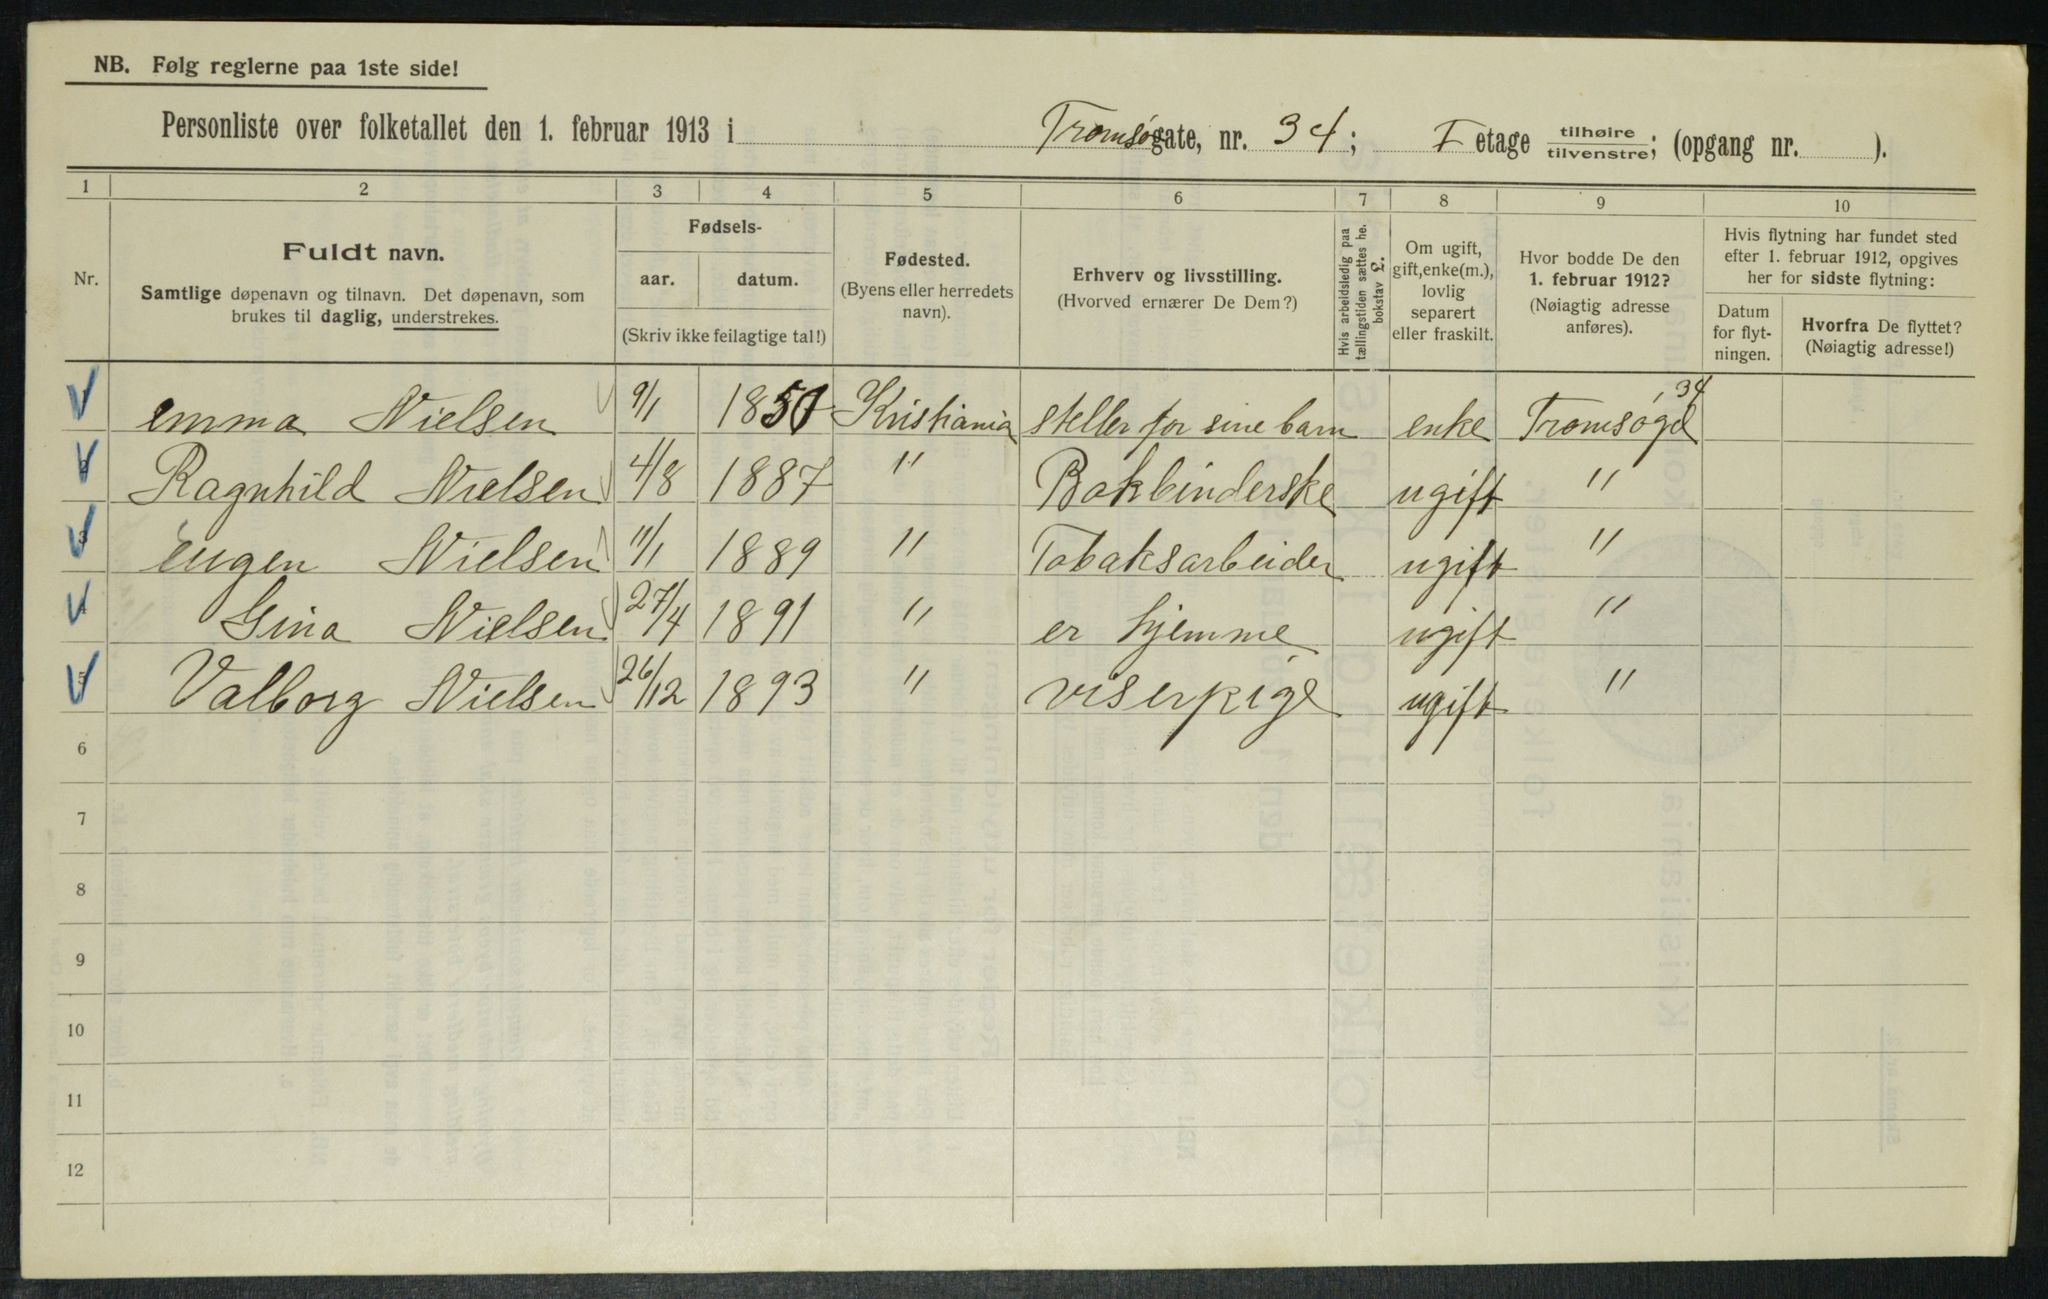 NB. Følg reglerne paa 1ste side!
Personliste over folketallet den 1. februar 1913 i Tromsøgate, nr. 34; I etage tilhøire / tilvenstre; (opgang nr. ).
1 2 3 4 5 6 7 8 9 10
Nr.
Fuldt navn.
Samtlige døpenavn og tilnavn. Det døpenavn, som
brukes til daglig, understrekes.
Fødsels-
aar. datum.
(Skriv ikke feilagtige tal!)
Fødested.
(Byens eller herredets
navn).
Erhverv og livsstilling.
(Hvorved ernærer De Dem?)
Hvis arbeidsledig paa
tællingstiden sættes he.
bokstav L.
Om ugift,
gift, enke(m.),
lovlig
separert
eller fraskilt.
Hvor bodde De den
1. februar 1912?
(Nøiagtig adresse
anføres).
Hvis flytning har fundet sted
efter 1. februar 1912, opgives
her for sidste flytning:
Datum
for flyt-
ningen.
Hvorfra De flyttet?
(Nøiagtig adresse!)
emma Nielsen 9/1 Kristiania steller for sine barn enke Tromsøgd 34
2 Ragnhild Nielsen 4/8 1887 " Bokbinderske ugift "
3 eugen Nielsen 11/1 1889 " Tobaksarbeider ugift "
4 Gina Nielsen 27/4 1891 " er hjemme ugift "
5 Valborg Nielsen 26/12 1893 " viserpige ugift "
6
7
8
9
10
11
12